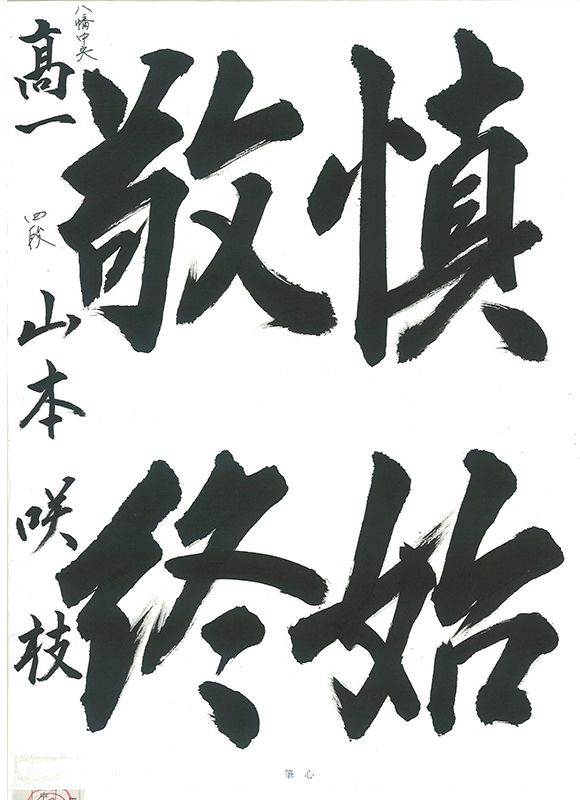 慎始
敬終
八幡中央
高一 四段 山本咲枝
心筆
中